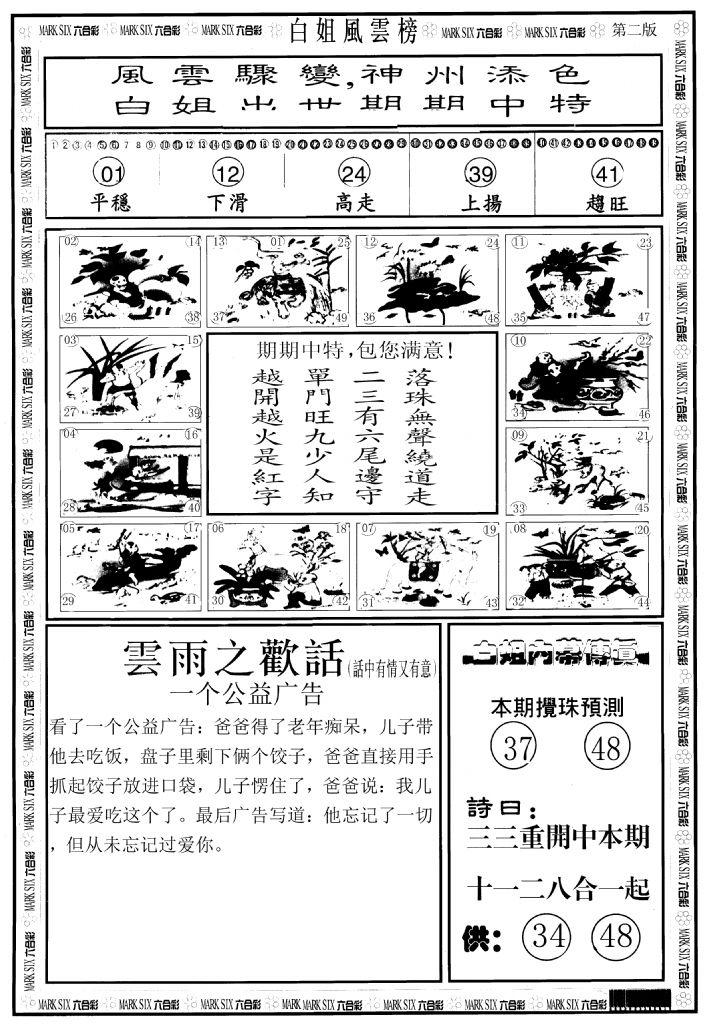 MARK SIX 六合彩 MARK SIX 六合彩 MARK SIX 六合彩 白姐風雲榜 MARK SIX 六合彩 MARK SIX 六合彩 第二版
風雲驟變,神州添色
白姐出世期期中特
01 12 24 39 41
平穩 下滑 高走 上揚 趨旺
02 14 13 01 25 12 24 11 23
26 38 37 49 36 48 35 47
03 15
27 39
04 16
28 40
期期中特,包您满意!
落珠無聲繞道走
二三有六尾邊守
單門旺九少人知
越開越火是紅字
10 22
34 46
09 21
33 45
05 17 06 18 07 19 08 20
29 41 30 42 31 43 32 44
雲雨之歡話(話中有情又有意)
一个公益广告
看了一个公益广告:爸爸得了老年痴呆,儿子带
他去吃饭,盘子里剩下俩个饺子,爸爸直接用手
抓起饺子放进口袋,儿子愣住了,爸爸说:我儿
子最爱吃这个了。最后广告写道:他忘记了一切
,但从未忘记过爱你。
白姐内幕傳真
本期攪珠預測
37 48
詩曰:
三三重開中本期
十一二八合一起
供: 34 48
MARK SIX 六合彩 MARK SIX 六合彩 MARK SIX 六合彩 MARK SIX 六合彩 MARK SIX 六合彩 MARK SIX 六合彩 MARK SIX 六合彩